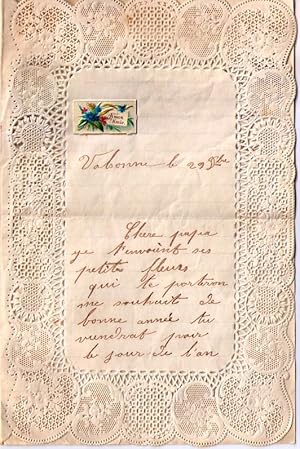 Valonne le 29 Xbre
Chere papa
je t'envoient ses
petite fleurs
qui te porteron
me souhait de
bonne année tu
viendrat pour
le jour de l'an